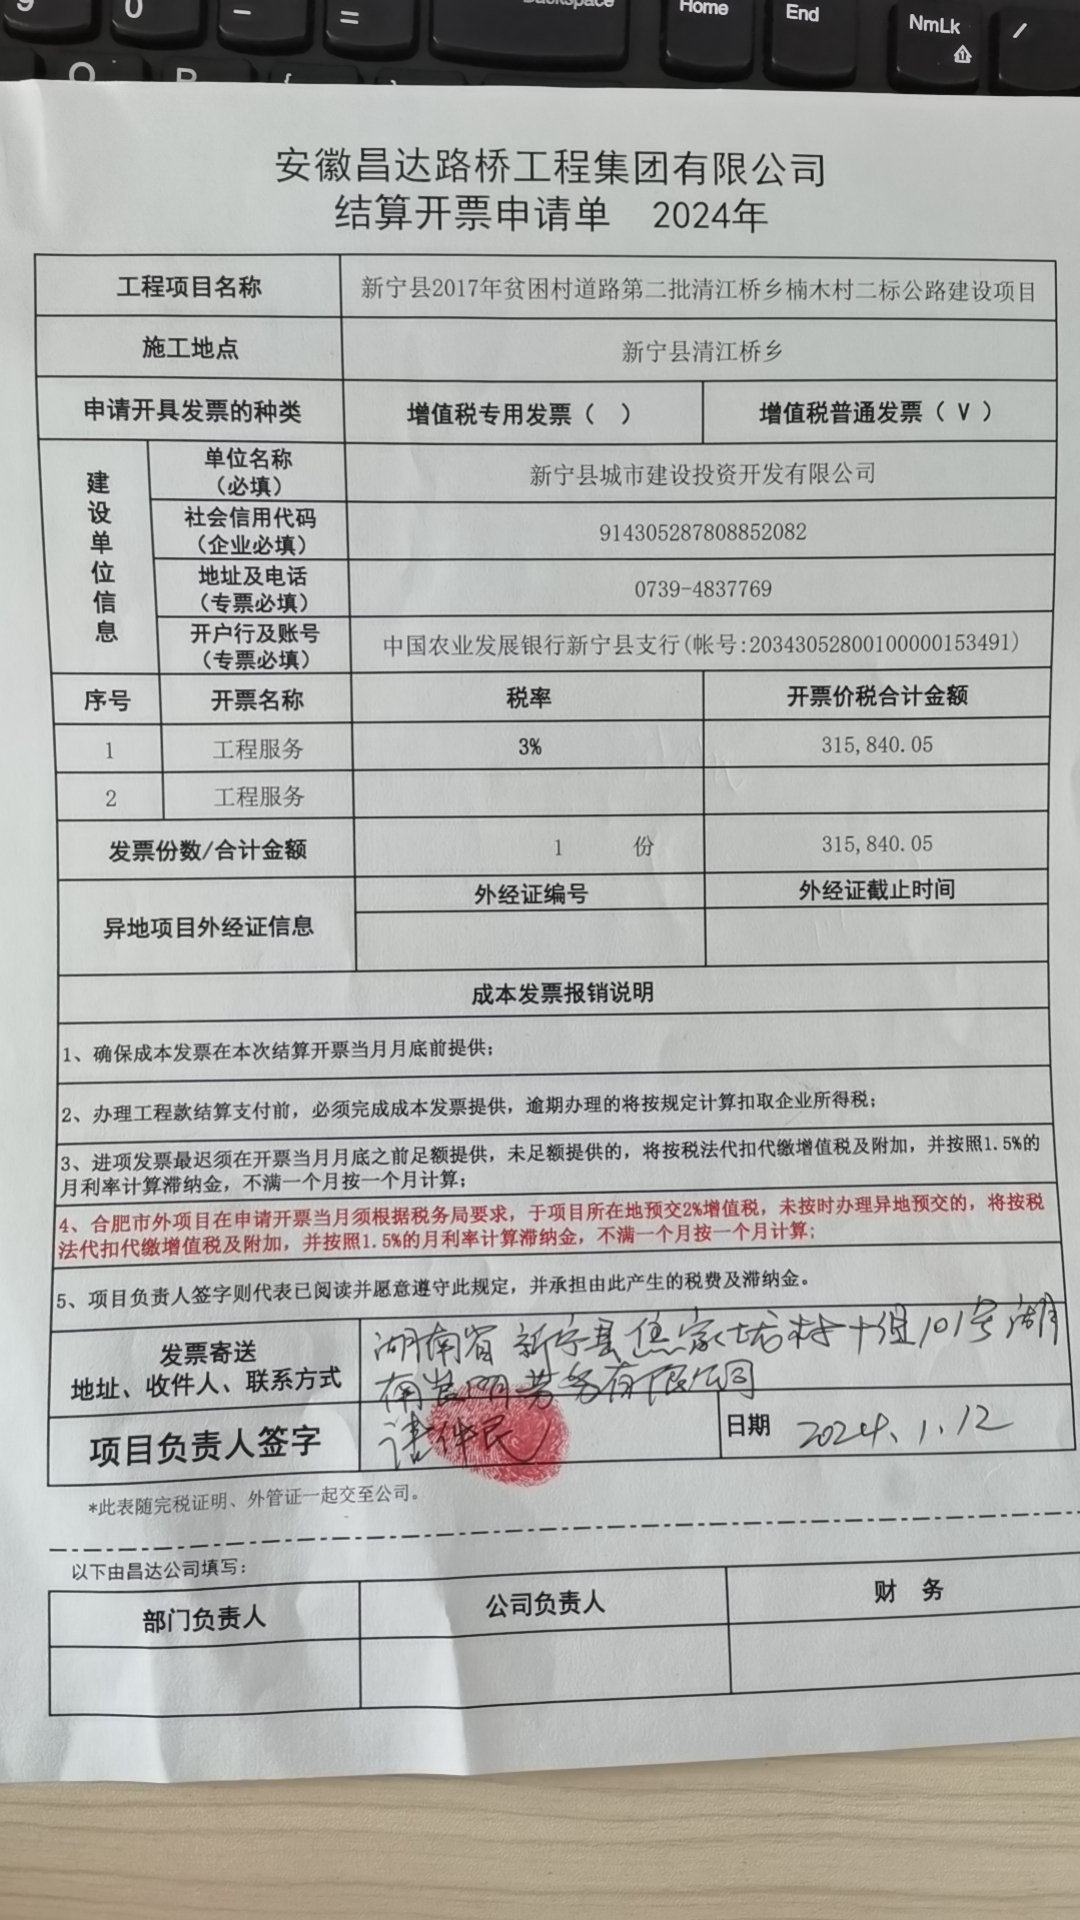 9
0
-
=
Backspace
Home
End
NmLk
/
O
P
{
安徽昌达路桥工程集团有限公司
结算开票申请单 2024年
工程项目名称 新宁县2017年贫困村道路第二批清江桥乡楠木村二标公路建设项目
施工地点 新宁县清江桥乡
申请开具发票的种类 增值税专用发票( ) 增值税普通发票( V )
建设单位信息
单位名称
(必填)
新宁县城市建设投资开发有限公司
社会信用代码
(企业必填)
914305287808852082
地址及电话
(专票必填)
0739-4837769
开户行及账号
(专票必填)
中国农业发展银行新宁县支行(帐号:20343052800100000153491)
序号 开票名称 税率 开票价税合计金额
1 工程服务 3% 315,840.05
2 工程服务
发票份数/合计金额 1 份 315,840.05
异地项目外经证信息 外经证编号 外经证截止时间
成本发票报销说明
1、确保成本发票在本次结算开票当月月底前提供;
2、办理工程款结算支付前,必须完成成本发票提供,逾期办理的将按规定计算扣取企业所得税;
3、进项发票最迟须在开票当月月底之前足额提供,未足额提供的,将按税法代扣代缴增值税及附加,并按照1.5%的
月利率计算滞纳金,不满一个月按一个月计算;
4、合肥市外项目在申请开票当月须根据税务局要求,于项目所在地预交2%增值税,未按时办理异地预交的,将按税
法代扣代缴增值税及附加,并按照1.5%的月利率计算滞纳金,不满一个月按一个月计算;
5、项目负责人签字则代表已阅读并愿意遵守此规定,并承担由此产生的税费及滞纳金。
发票寄送
地址、收件人、联系方式
湖南省新宁县 家坊村十组101号湖
南 明劳务有限公司
项目负责人签字 日期 2024.1.12
*此表随完税证明、外管证一起交至公司。
以下由昌达公司填写:
部门负责人 公司负责人 财 务